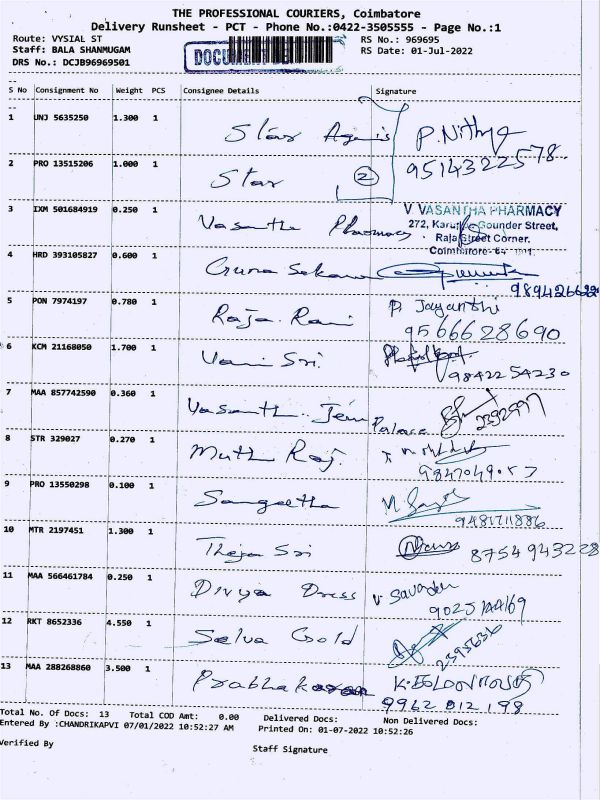 THE PROFESSIONAL COURIERS, Coimbatore
Delivery Runsheet - PCT - Phone No.:0422-3505555 - Page No.:1
Route: VYSIAL ST RS No.: 969695
Staff: BALA SHANMUGAM RS Date: 01-Jul-2022
DRS No.: DCJB96969501
DOCUMENT
S No Consignment No Weight PCS Consignee Details Signature
1 UNJ 5635250 1.300 1
Star P. Nithya
2 PRO 13515206 1.000 1 9514322578
Star 2
3 IXM 501684919 0.250 1 V VASANTHA PHARMACY
Vasantha Pharmacy 272, Gounder Street,
Raja Street Corner,
4 HRD 393105827 0.600 1
Guna
5 PON 7974197 0.780 1 P. Jayanthi
Raja Rani 9566628690
6 KCM 21168050 1.700 1
Vani Sri. 9842254230
7 MAA 857742590 0.360 1
Palace
8 STR 329027 0.270 1
Muthu Raj.
9 PRO 13550298 0.100 1
Sangeetha
10 MTR 2197451 1.300 1
Theja Sri 8754943228
11 MAA 566461784 0.250 1
Divya Dress
12 RKT 8652336 4.550 1
Selva Gold
13 MAA 288268860 3.500 1
9962 012 198
Total No. Of Docs: 13 Total COD Amt: 0.00 Delivered Docs: Non Delivered Docs:
Entered By :CHANDRIKAPVI 07/01/2022 10:52:27 AM Printed On: 01-07-2022 10:52:26
Verified By Staff Signature